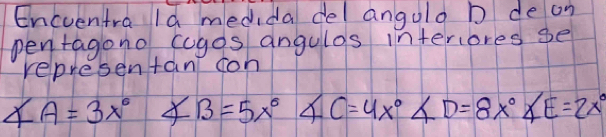 Encuentra la medida del angulo D de un
pentagono cuyos angulos interiores se
representan con
∡A=3x° ∡B=5x° ∡C=4x° ∡D=8x° ∡E=2x°